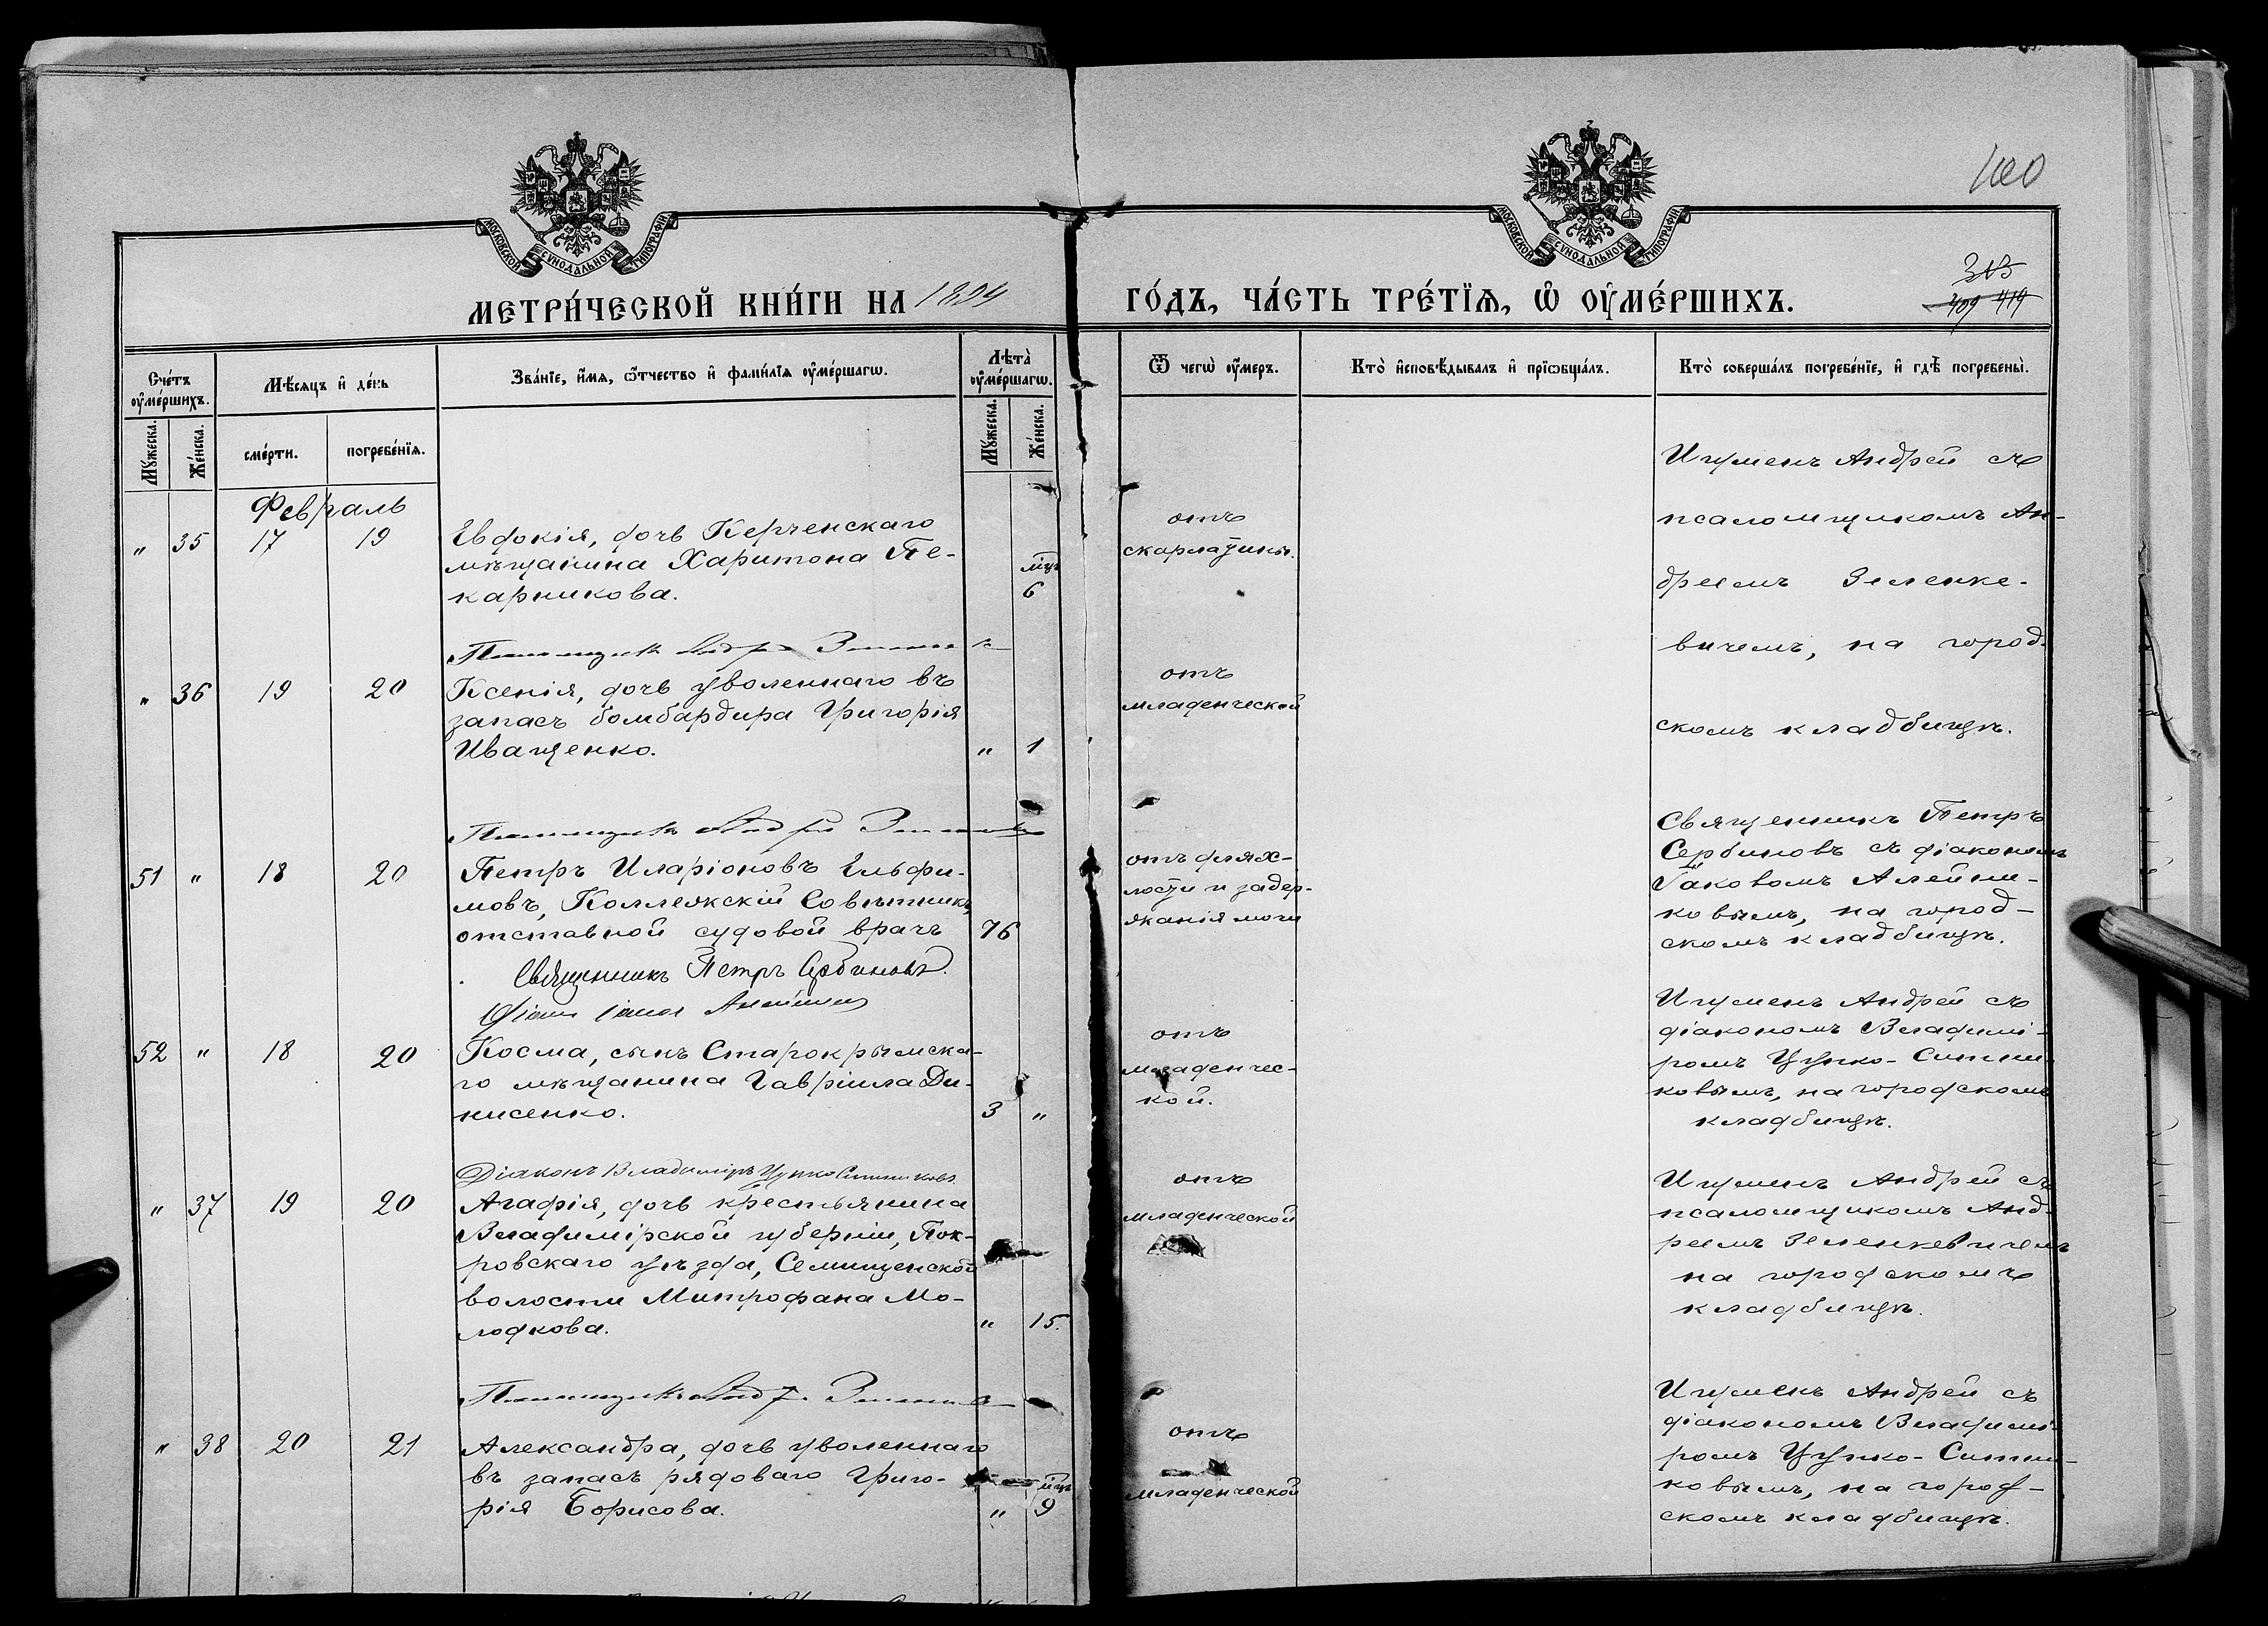 100
МОСКОВСКОЙ СУНОДАЛЬНОЙ ТИПОГРАФІИ
МОСКОВСКОЙ СУНОДАЛЬНОЙ ТИПОГРАФІИ
МЕТРИ́ЧЕСКОЙ КНИ́ГИ НА 1894 ГО́ДЪ, ЧА́СТЬ ТРЕ́ТЇѦ, Ѡ҆ ОУ҆МЕ́РШИХЪ.
409 419
Сче́тъ оу҆ме́ршихъ.
Мꙋ́жеска.
Же́нска.
Мѣ́сѧцъ и҆ де́нь
сме́рти.
погребе́нїѧ.
Зва́нїе, и҆́мѧ, ѻ҆́тчество и҆ фами́лїѧ оу҆ме́ршагѡ.
Лѣ́та оу҆ме́ршагѡ.
Мꙋ́жеска.
Же́нска.
Ѿ чегѡ̀ оу҆́меръ.
Кто̀ и҆сповѣ́дывалъ и҆ прїѡбща́лъ.
Кто̀ соверша́лъ погребе́нїе, и҆ гдѣ̀ погребены̀.
Февраль
" 35 17 19
Евдокія, дочь Керченскаго
мѣщанина Харитона Пе-
карникова.
мцъ
6
отъ
скарлатины.
Игуменъ Андрей съ
псаломщикомъ Ан-
дреемъ Зеленке-
вичемъ, на город-
скомъ кладбищѣ.
" 36 19 20
Ксенія, дочь уволеннаго въ
запасъ бомбардира Григорія
Иващенко.
" 1
отъ
младенческой
51 " 18 20
Петръ Иларіоновъ Ельфи-
мовъ, Коллежскій Совѣтникъ,
отставной судовой врачъ
76
Священникъ Петръ Сербиновъ.
отъ дрях-
лости и задер-
жанія мочи
Священникъ Петръ
Сербиновъ съ діакономъ
Іаковомъ Алейни-
ковымъ, на город-
скомъ кладбищѣ.
52 " 18 20
Косма, сынъ Старокрымска-
го мѣщанина Гавріила Де-
нисенко.
3 "
Діаконъ Владиміръ Цупко Ситниковъ.
отъ
младенчес-
кой.
Игуменъ Андрей съ
діакономъ Владимі-
ромъ Цупко-Ситни-
ковымъ, на городскомъ
кладбищѣ.
" 37 19 20
Агафія, дочь крестьянина
Владимірской губерніи, Пок-
ровскаго уѣзда, Семищенской
волости Митрофана Мо-
лодкова.
" 15.
отъ
младенческой
Игуменъ Андрей съ
псаломщикомъ Анд-
реемъ Зеленкевичемъ
на городскомъ
кладбищѣ.
" 38 20 21
Александра, дочь уволеннаго
въ запасъ рядоваго Григо-
рія Борисова.
мцъ
" 9
отъ
младенческой
Игуменъ Андрей съ
діакономъ Владимі-
ромъ Цупко-Ситни-
ковымъ, на город-
скомъ кладбищѣ.